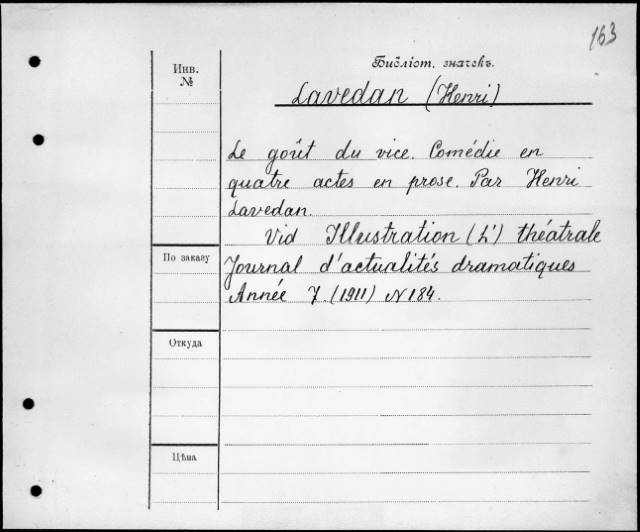 163
Инв.
№
Библіот. значекъ.
Lavedan (Henri)
Le goût du vice. Comédie en
quatre actes en prose. Par Henri
Lavedan.
Vid Illustration (L') théatrale
По заказу
Journal d'actualités dramatiques
Année 7. (1911) N 184.
Откуда
Цѣна